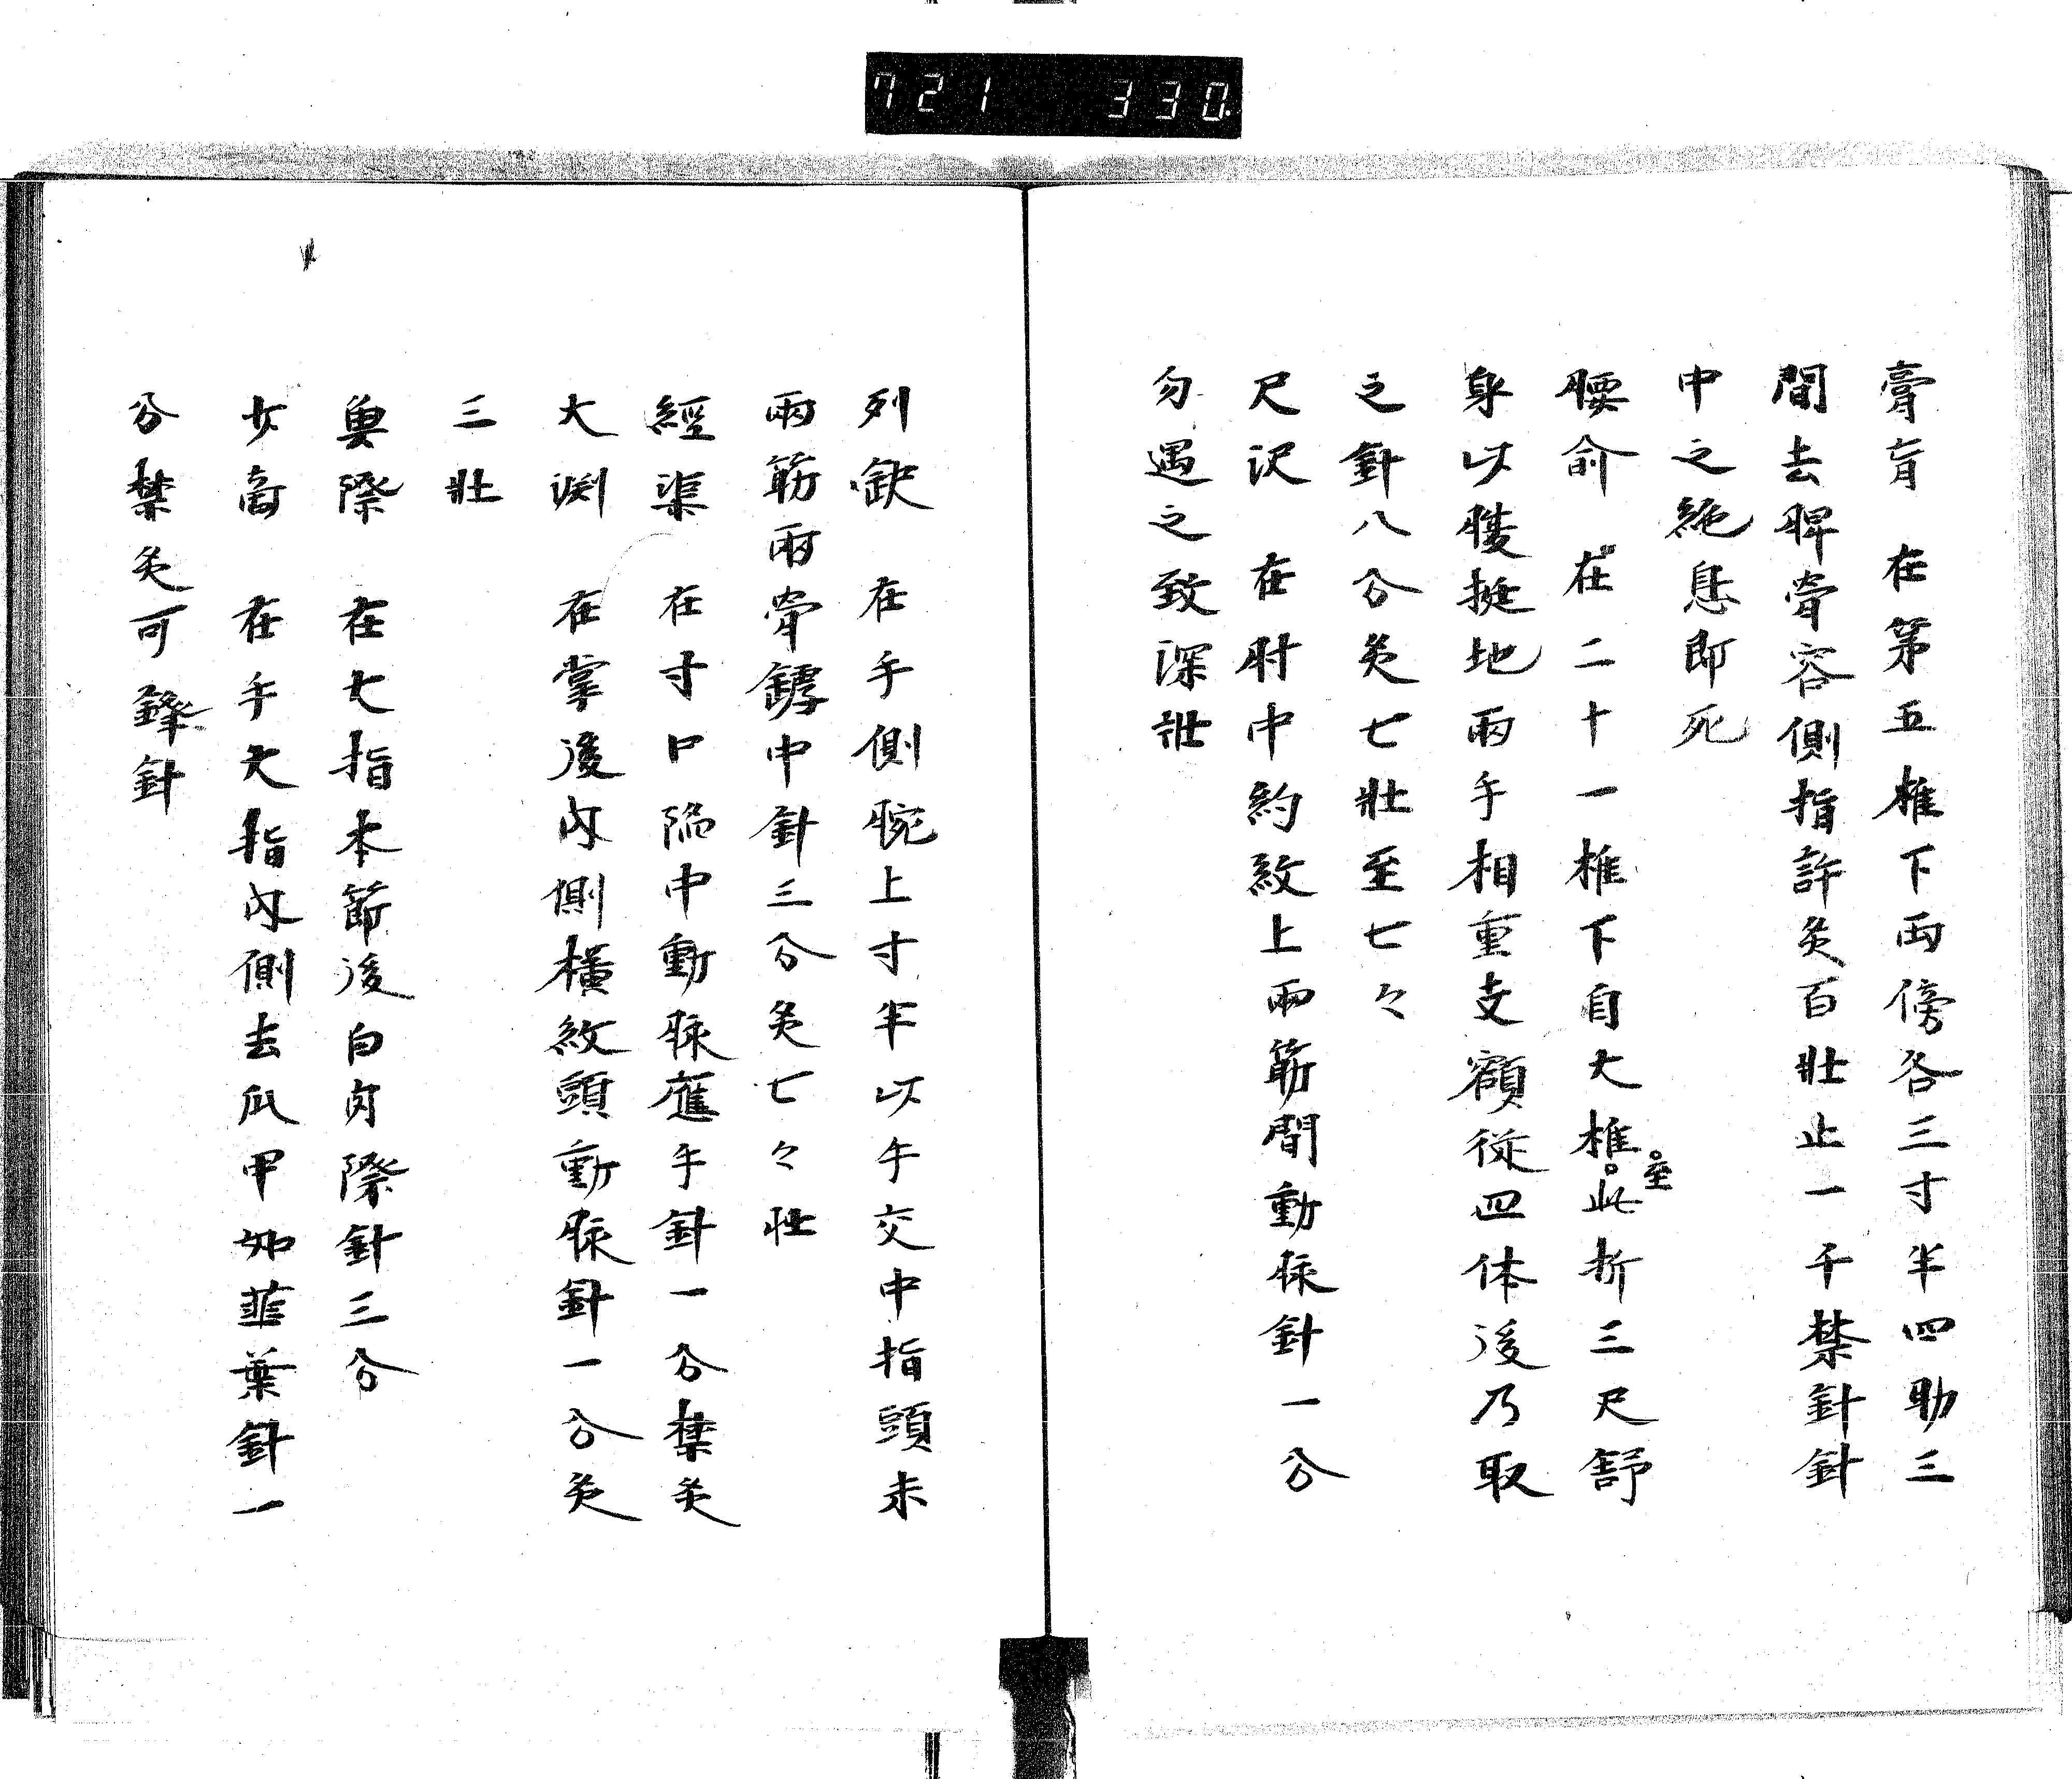 721 330
膏肓 在第五椎下両傍各三寸半四肋三
間去脾骨容側指許灸百壮止一千禁針針
中之絶息即死
腰俞 在二十一椎下自大椎至此折三尺舒
身以腹挺地兩手相重支額從四体後乃取
之針八分灸七壮至七々
尺沢 在肘中約紋上兩筋間動脉針一分
勿過之致深壮
列缺 在手側腕上寸半以手交中指頭末
兩筋兩骨罅中針三分灸七々壮
經渠 在寸口陥中動脉應手針一分禁灸
大渕 在掌後内側横紋頭動脉針一分灸
三壮
魚際 在大指本節後白肉際針三分
少商 在手大指内側去爪甲如韮葉針一
分禁灸可鋒針